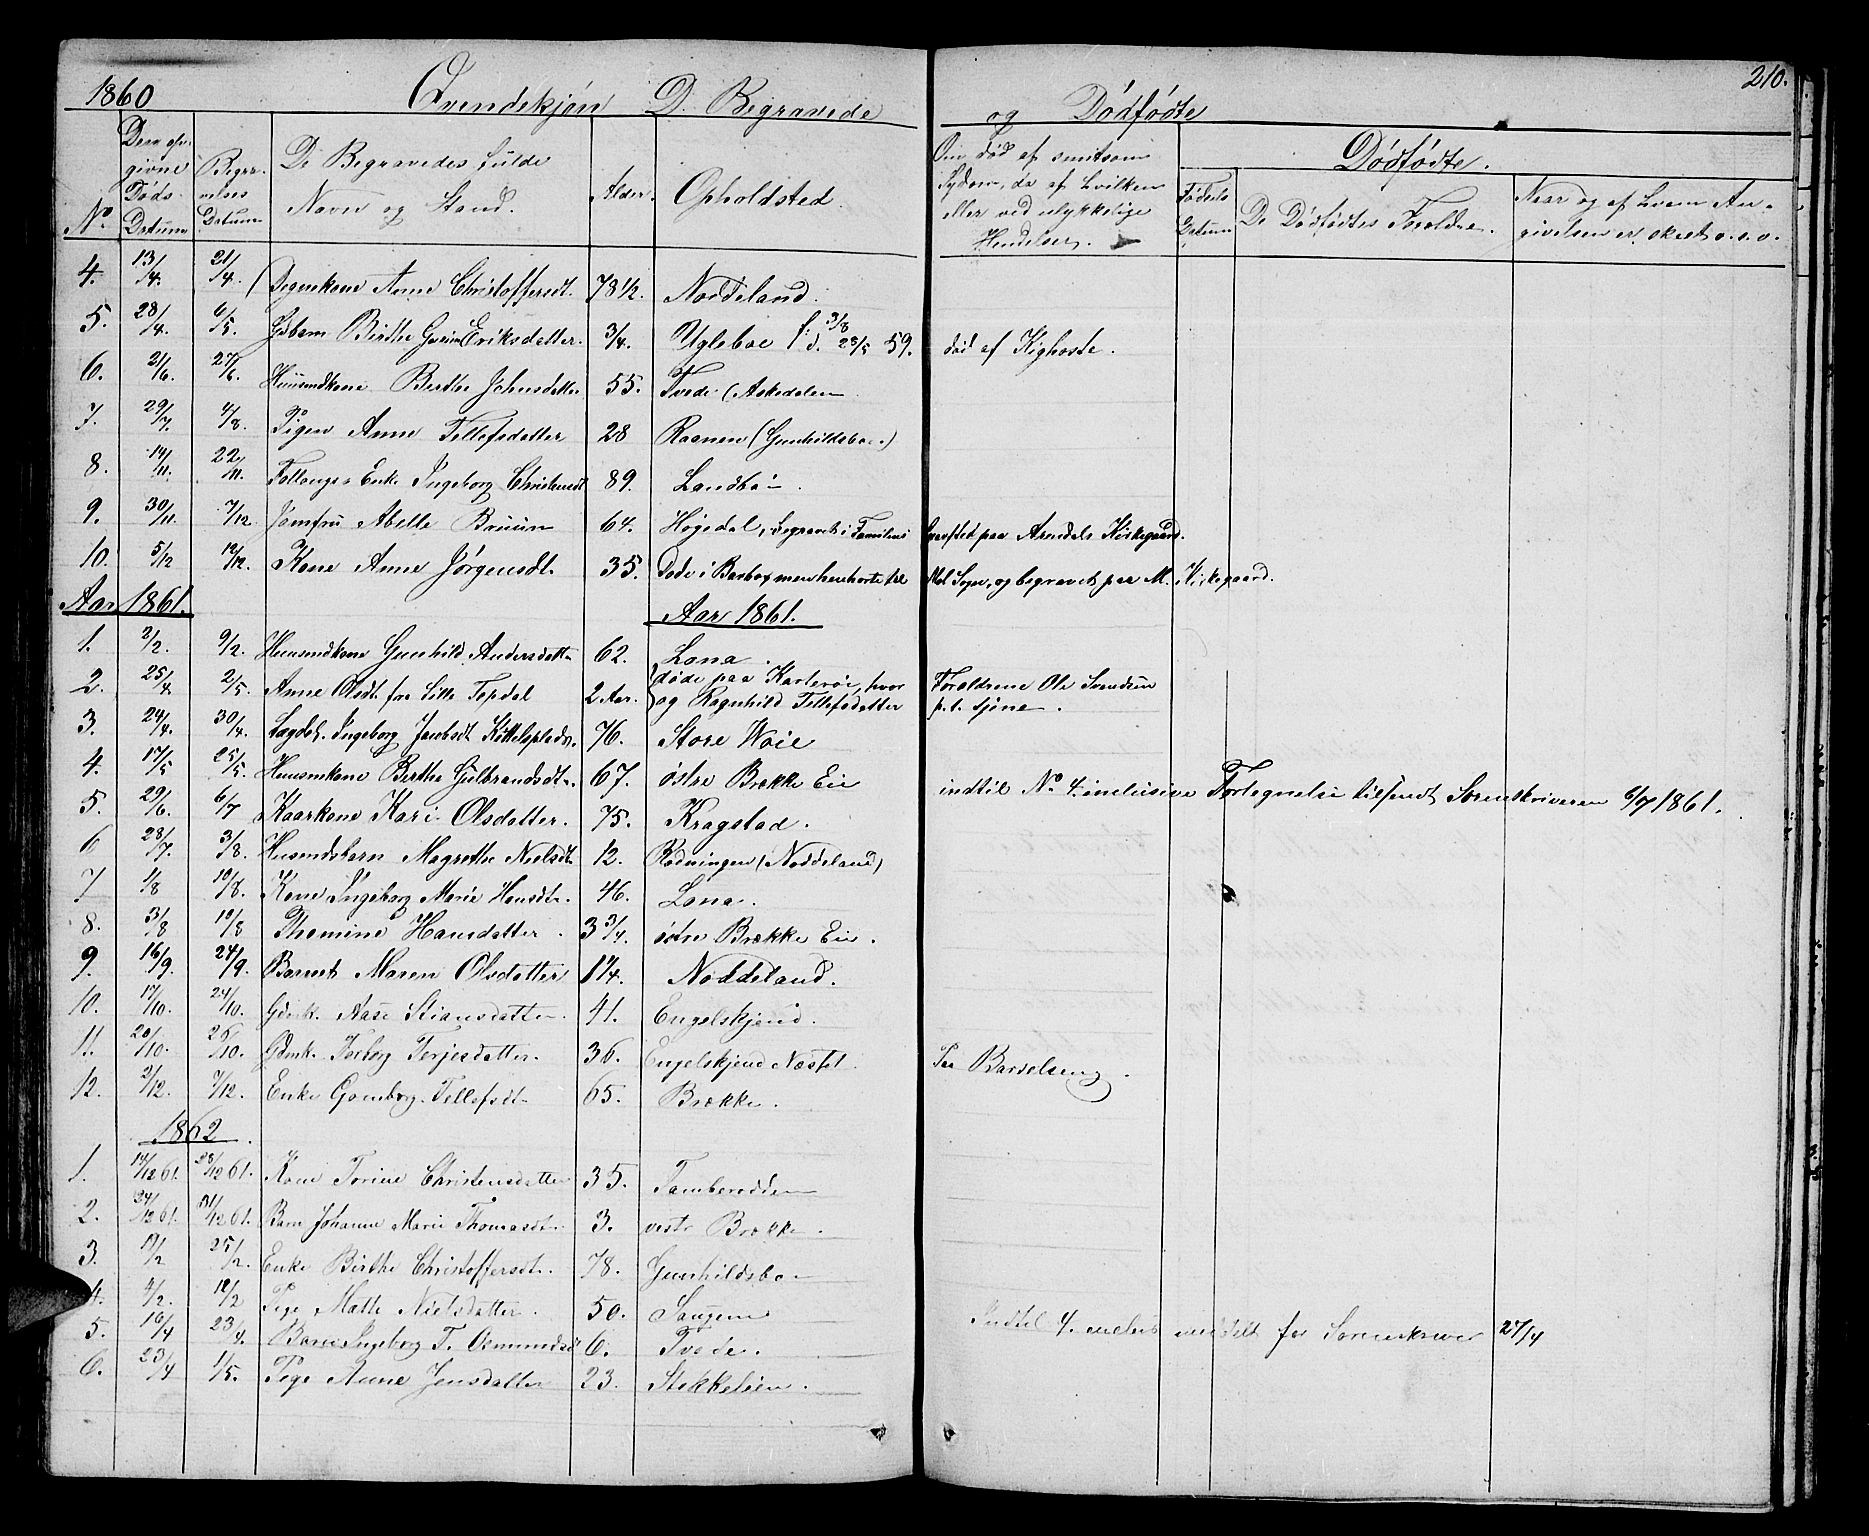 1860 Qvendekjøn D. Begravede og Dødfødte 210.
No. Den opgivne Døds Datum Begravelses Datum De Begravedes fulde Navn og Stand. Alder. Opholdsted. Om død af smitsom Sydom, da af hvilken eller ved ulykkelige Hendelser. Dødfødte.
Fødsels Datum De Dødfødtes Foreldre. Naar og af hvem Angivelsen er skeet o.s.v.
4. 13/4. 21/4. Anne Christoffersdt. 78 1/2. Noddeland.
5. 28/4. 6/5. Birthe Eriksdatter. 3/4. Ugleboe f. 3/8 d. 28/5 59. død af Kighoste.
6. 21/6. 27/6. Huusmdkone Berthe Johnsdatter 55. Tvede (Askedalen
7. 29/7. 4/8. Pigen Anne Tellefsdatter 28 Raanen (Gunhildsboe.)
8. 14/11. 22/11. Enke Ingeborg Christensdt 89. Landbø
9. 30/11. 7/12. Jomfru Abelle Bruun 64. Høgedal, begravet i Familiens Gravsted paa Arendals Kirkegaard.
10. 5/12 12/12. Kone Anne Jørgensdt. 35. Døde i Barbo, men henhørte til Mol. Sogn, og begravet paa M. Kirkegaard.
Aar 1861. Aar 1861.
1. 2/2. 9/2. Huusmdkone Gunhild Andersdatt 62. Lona.
2. 25/4 2/5. Anne Olsdt. fra Lille Topdal 2 Aar. døde paa Kasterøe, hvor Foreldrene Ole Svendsen
og Ragnhild Tellefsdatter p.t. tjene.
3. 24/4. 30/4. Lægdsl. Ingeborg Jacobsdt Kittelsplads. 76. Store Woie
4. 17/5 25/5. Huusmkone Berthe Gulbrandsdt. 67. østre Brække Eie indtil No 4. inclusive Fortegnelse tilsendt Sorenskriveren 6/7 1861.
5. 29/6. 6/7 Kaarkone Kari Olsdatter. 75. Kragstad.
6 28/7. 3/8. Husmdsbarn Magrethe Nielsdt. 12. Rødningen (Noddeland)
7 1/8 10/8. Kone Ingeborg Marie Hansdt. 46. Lona.
8. 3/8 10/8 Thomine Hansdatter. 3 3/4. østre Brække Eie.
9. 16/9. 24/9. Barnet Maren Olsdatter 1 1/4. Noddeland.
10. 17/10. 24/10. Gdmk. Aase Stiansdatter. 41. Engelskjønd.
11. 20/10. 26/10. Gdmk. Torborg Terjesdatter. 36. Engelskjønd Næstet. Paa Barselseng.
12. 2/12. 7/12. Enke Gonborg Tellefsdt. 65. Brække.
1862.
1. 14/12 61. 23/12 61. Kone Torine Christensdatter 35. Tamberodden
2. 24/12 61. 31/12 61. Barn Johanne Marie Thomasdt. 3. vestr Brække.
3. 19/2 25/2. Enke Birthe Christoffersdt. 78. Gunhildsboe
4. 4/2. 12/2 Pige Mathe Nielsdatter. 50. Saugene
5. 16/4 23/4. Barn Ingeborg T. Osmundsd 6. Tvede. Indtil 4. incl. meddelt for Sorenskriver 27/4
6. 23/4 1/5. Pige Anne Jensdatter 23. Stokkelien.